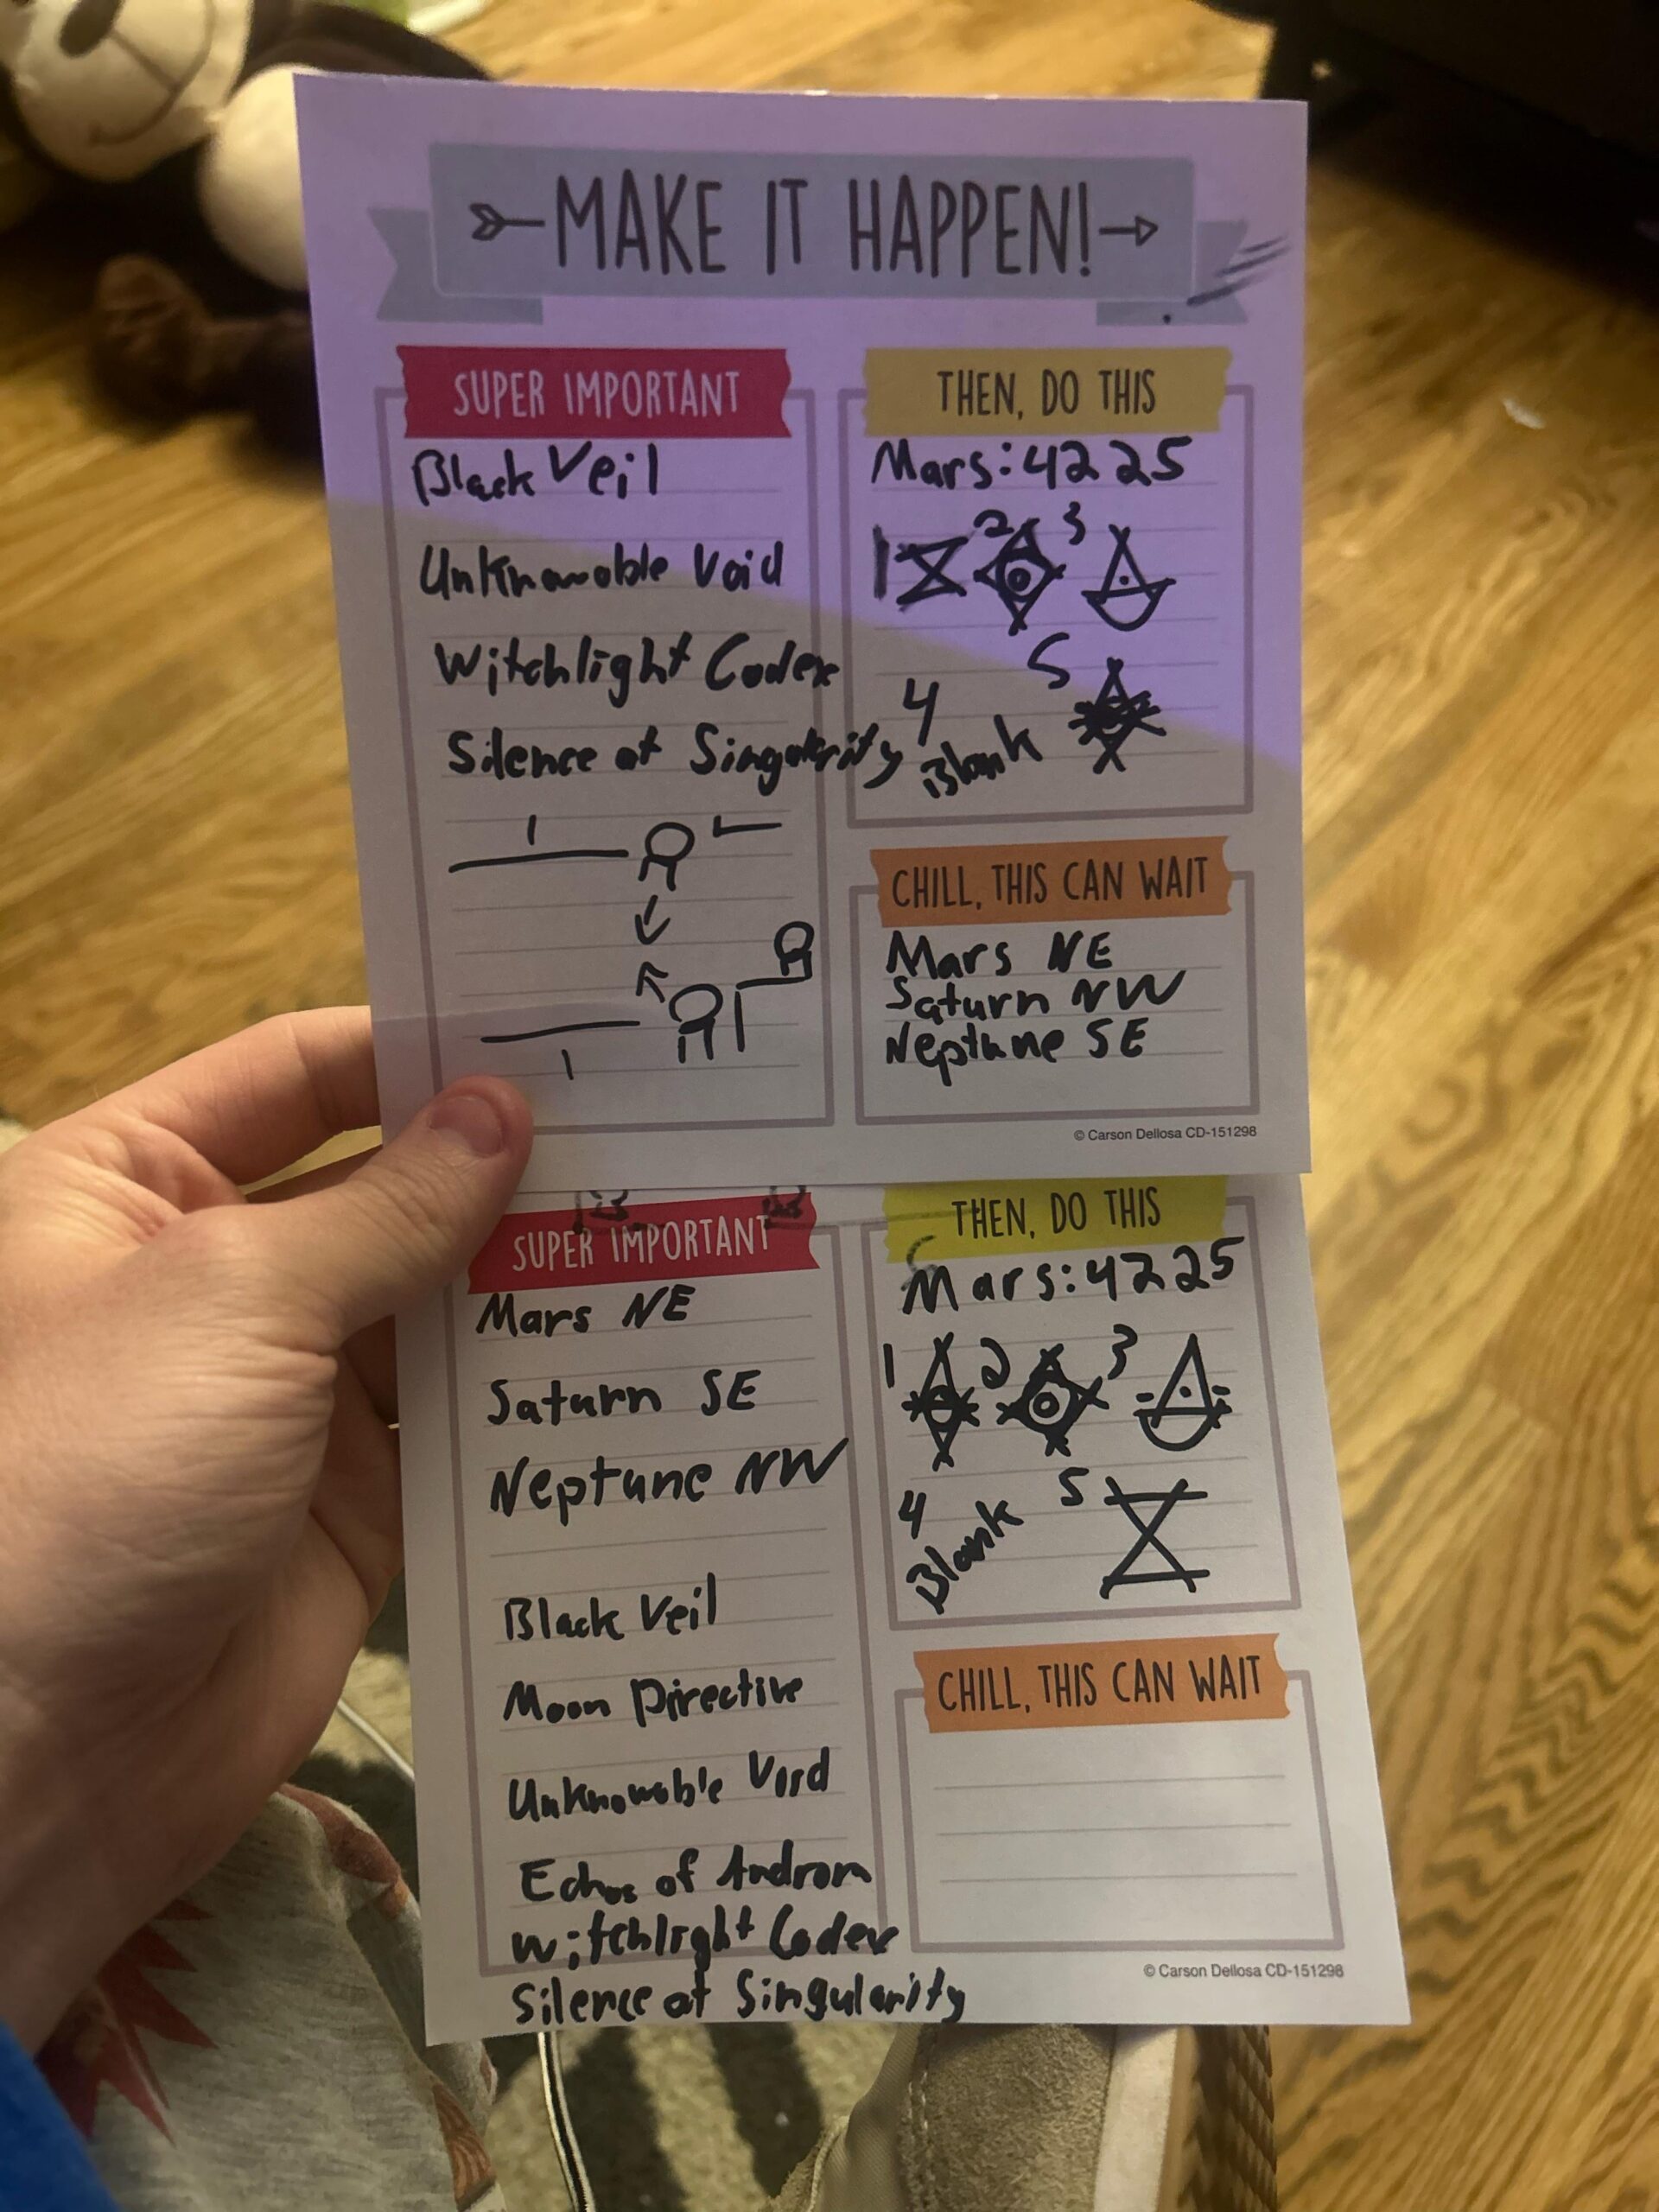 MAKE IT HAPPEN!
SUPER IMPORTANT
Black Veil
Unknowable Void
Witchlight Codex
Silence at Singularity
1
1
THEN, DO THIS
Mars: 4225
1 2 3
4 5
Blank
CHILL, THIS CAN WAIT
Mars NE
Saturn NW
Neptune SE
© Carson Dellosa CD-151298
SUPER IMPORTANT
Mars NE
Saturn SE
Neptune NW
Black Veil
Moon Directive
Unknowable Void
Echos of Androm
Witchlight Codex
Silence at Singularity
THEN, DO THIS
Mars: 4225
1 2 3
4 5
Blank
CHILL, THIS CAN WAIT
© Carson Dellosa CD-151298